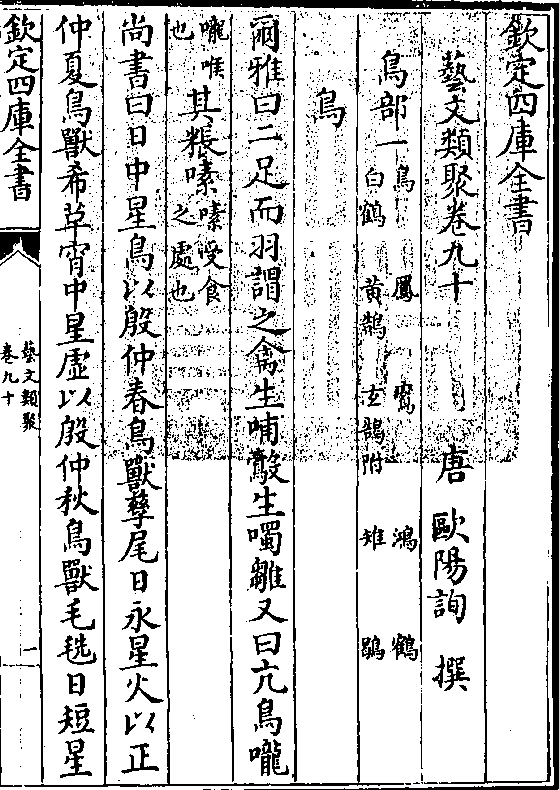 欽定四庫全書
藝文類聚卷九十
唐 歐陽詢 撰
鳥部一 鳥 鳳 鸞 鴻 鶴
白鶴 黃鵠 玄鵠附 雉 鶡
鳥
爾雅曰二足而羽謂之禽生哺鷇生噣雛又曰亢鳥嚨
嚨喉也 其粻嗉 嗉受食之處也
尚書曰日中星鳥以殷仲春鳥獸孳尾日永星火以正
仲夏鳥獸希革宵中星虛以殷仲秋鳥獸毛毨日短星
欽定四庫全書
藝文類聚
卷九十
一